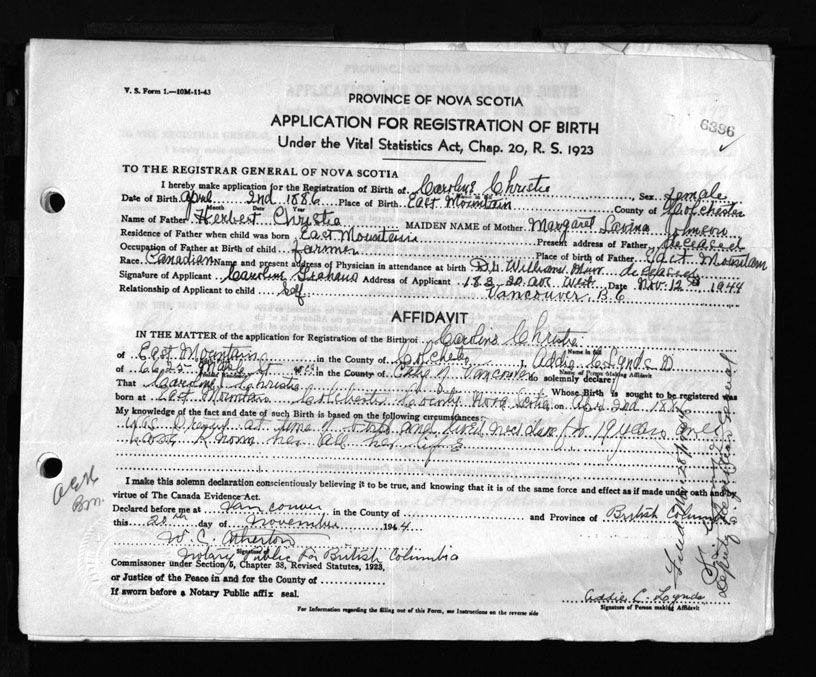 V. S. Form 1.—10M-11-43
PROVINCE OF NOVA SCOTIA
APPLICATION FOR REGISTRATION OF BIRTH
6396
Under the Vital Statistics Act, Chap. 20, R. S. 1923
TO THE REGISTRAR GENERAL OF NOVA SCOTIA
I hereby make application for the Registration of Birth of Caroline Christie Sex Female
Name in full
Date of Birth April 2nd 1886 Place of Birth East Mountain County of Colchester
Month Date Year
Name of Father Herbert Christie MAIDEN NAME of Mother Margaret Lavina Johnson
Residence of Father when child was born East Mountain Present address of Father deceased
Occupation of Father at Birth of child farmer Place of birth of Father East Mountain
Race Canadian Name and present address of Physician in attendance at birth Dr. Williams deceased
Signature of Applicant Caroline Address of Applicant 183 20 Ave West Date Nov. 12th 1944
Relationship of Applicant to child Self Vancouver B.C
AFFIDAVIT
IN THE MATTER of the application for Registration of the Birth of Caroline Christie
Name in full
of East Mountain in the County of Colchester I, Addie
Name of Person Making Affidavit
of in the County of Vancouver do solemnly declare:
That Caroline Christie Whose Birth is sought to be registered was
born at East Mountain Colchester County Nova Scotia on April 2nd 1886
My knowledge of the fact and date of such Birth is based on the following circumstances:
was at time of birth and lived for 19 years and
have known her all her life
I make this solemn declaration conscientiously believing it to be true, and knowing that it is of the same force and effect as if made under oath and by
virtue of The Canada Evidence Act.
Declared before me at Vancouver in the County of and Province of British Columbia
this 20th day of November 1944
W. C. Atherton
Notary Public for British Columbia
Commissoner under Section 5, Chapter 38, Revised Statutes, 1923,
or Justice of the Peace in and for the County of
If sworn before a Notary Public affix seal.
Addie C. Lynds
Signature of Person making Affidavit
For Information regarding the filling out of this Form, see Instructions on the reverse side
Deputy Registrar General